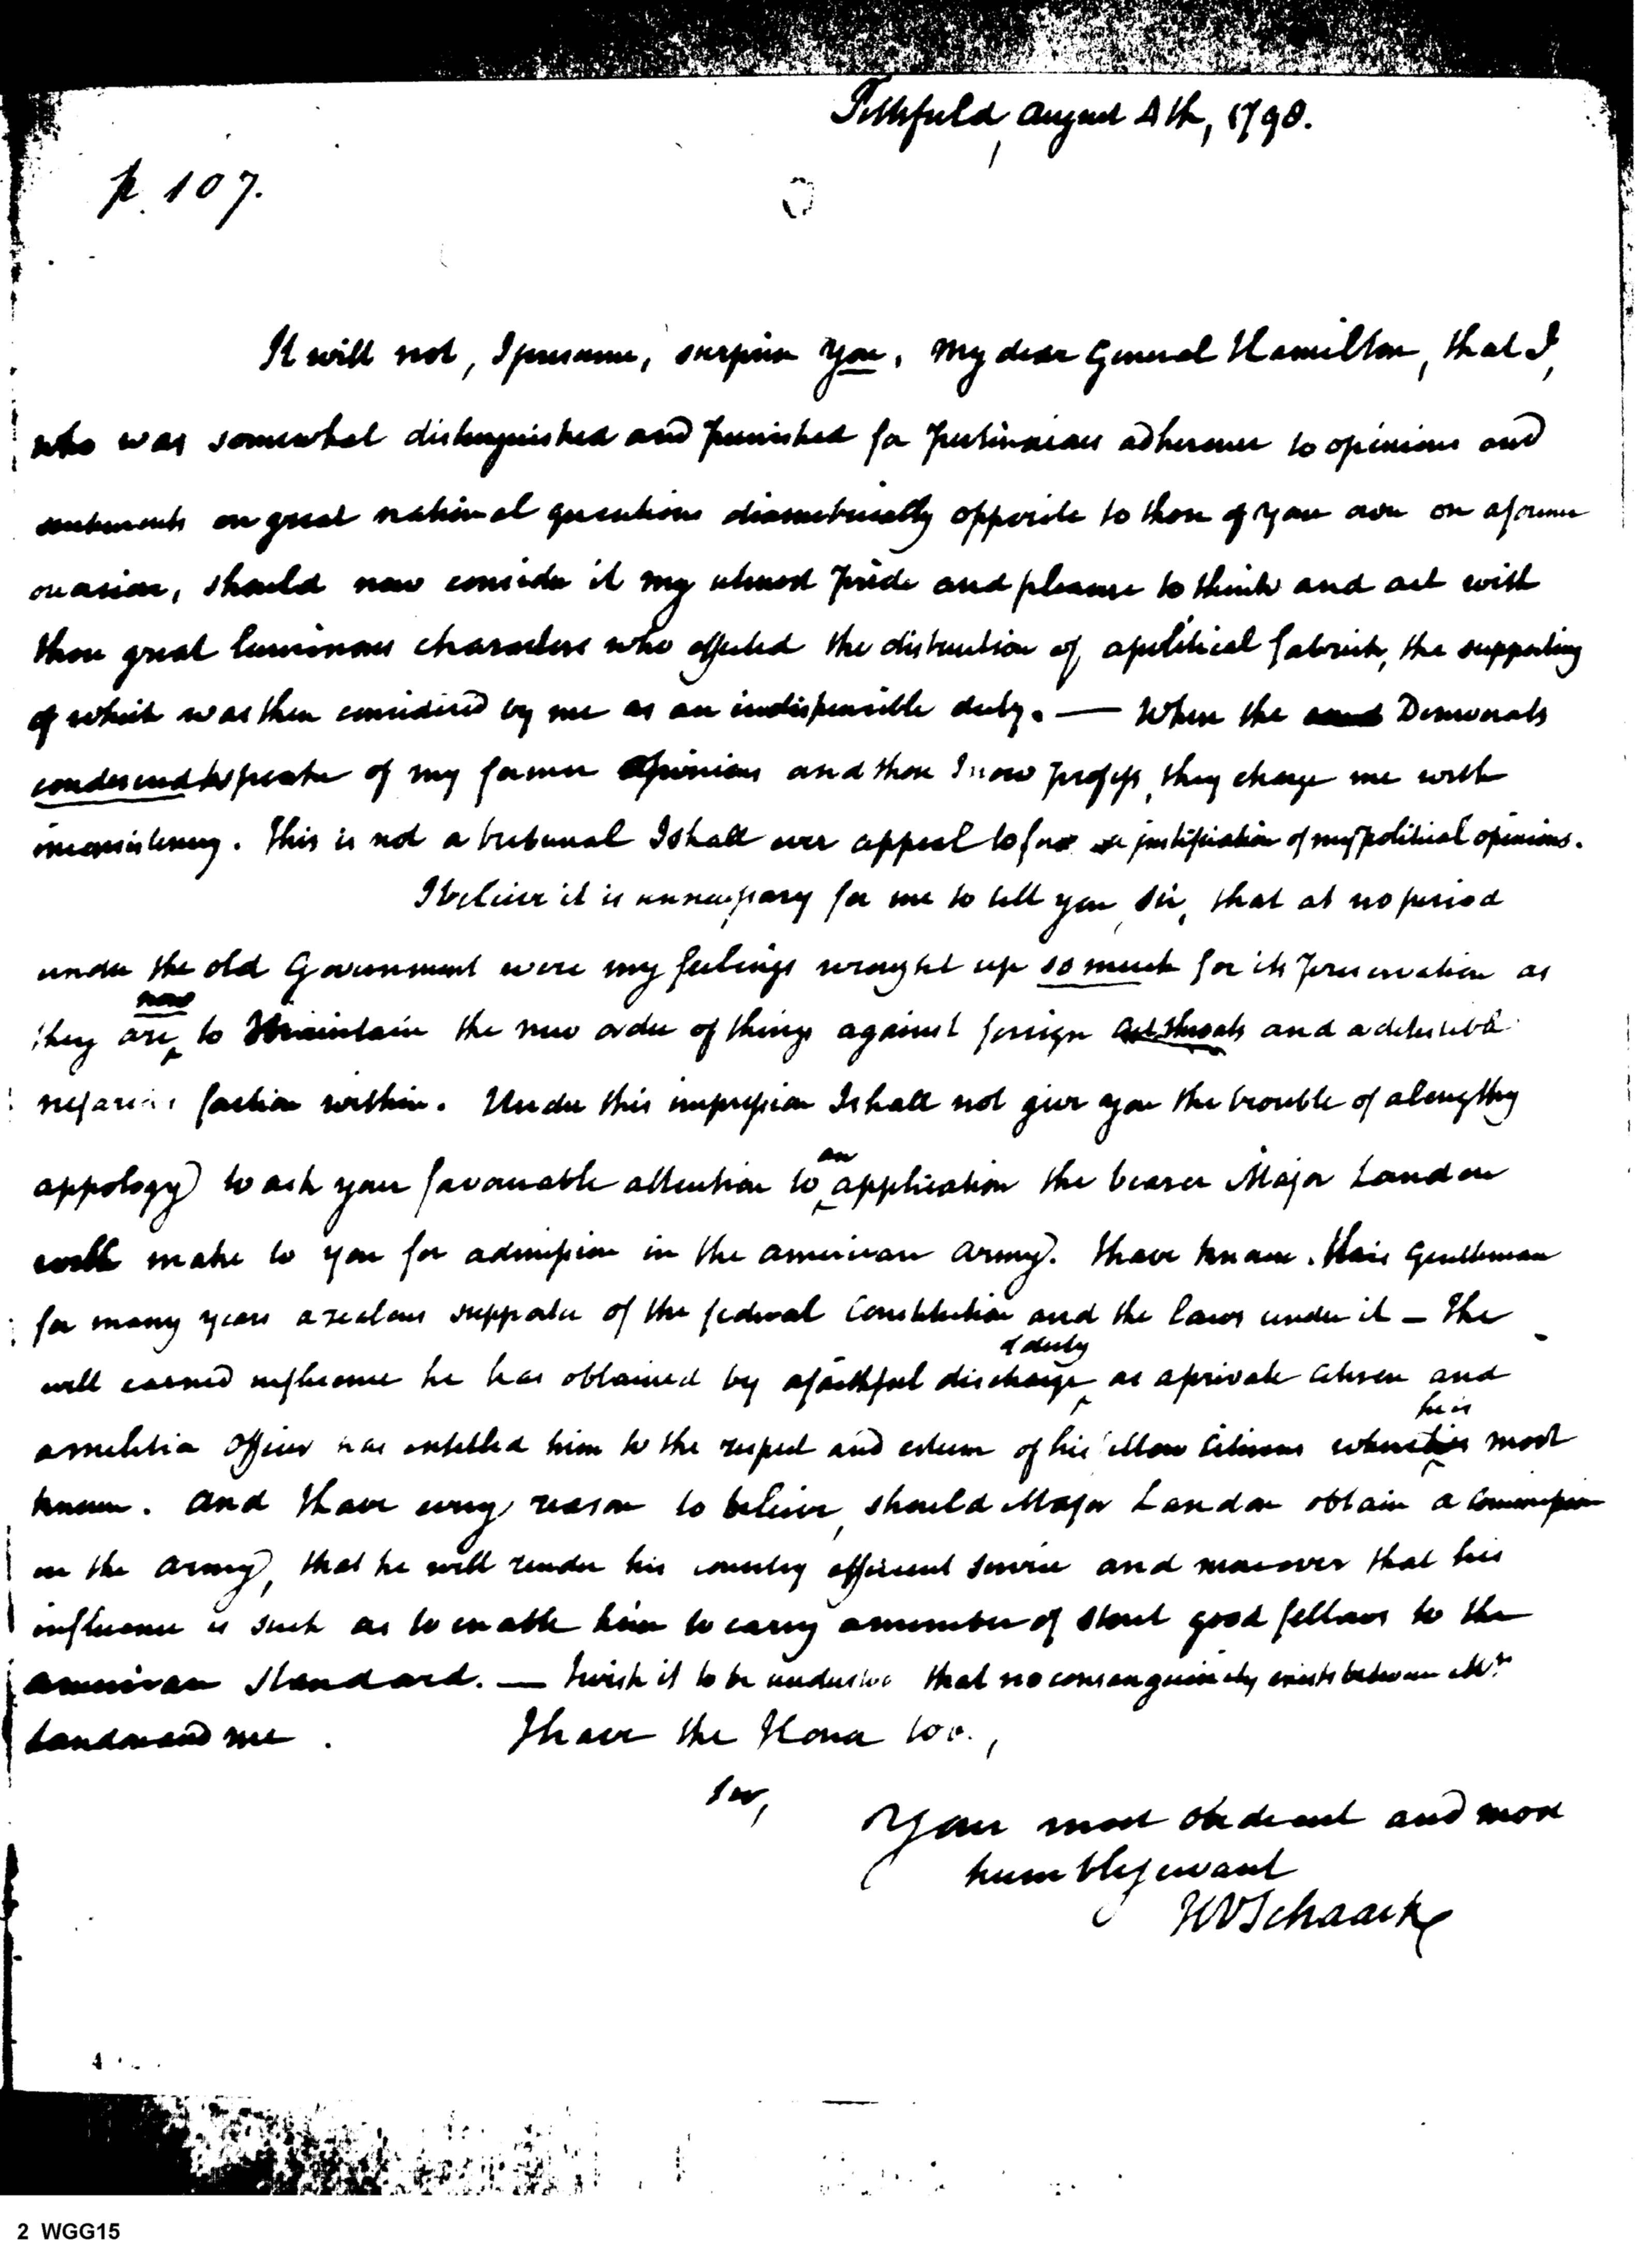 Pittsfield, August 4th, 1798.
p. 107.
It will not, I presume, surprise you, my dear General Hamilton, that I,
who was somewhat distinguished and punished for pertinacious adherence to opinions and
sentiments on great national questions diametrically opposite to those of your own on a former
occasion, should now consider it my utmost pride and pleasure to think and act with
those great luminous characters who effected the distruction of a political fabrick, the supporting
of which was then considered by me as an indispensible duty. — When the Democrats
condescend to speake of my former opinions and those I now profess, they charge me with
inconsistency. This is not a tribunal I shall ever appeal to for justification of my political opinions.
I believe it is unnecessary for me to tell you, Sir, that at no period
under the old Government were my feelings wrought up so much for its preservation as
now
they are to maintain the new order of things against foreign Cut throats and a detestable
nefarious faction within. Under this impression I shall not give you the trouble of a lengthy
an
appology to ask your favourable attention to application the bearer Major Landon
will make to you for admission in the american army. I have known this Gentleman
for many years a zealous supporter of the federal Constitution and the laws under it – The
of duty
well earned influence he has obtained by a faithful discharge as a private Citizen and
he is
a militia officer has entitled him to the respect and esteem of his fellow Citizens where most
known. And I have every reason to believe, should Major Landon obtain a Commission
in the army, that he will render his country efficient service and moreover that his
influence is such as to enable him to carry a number of stout good fellows to the
american standard. — I wish it to be understoo that no consanguinity exists between Mr
Landon and me. I have the Honor to be,
Sir,
Your most obedient and most
humble servant
HVSchaack
2 WGG15